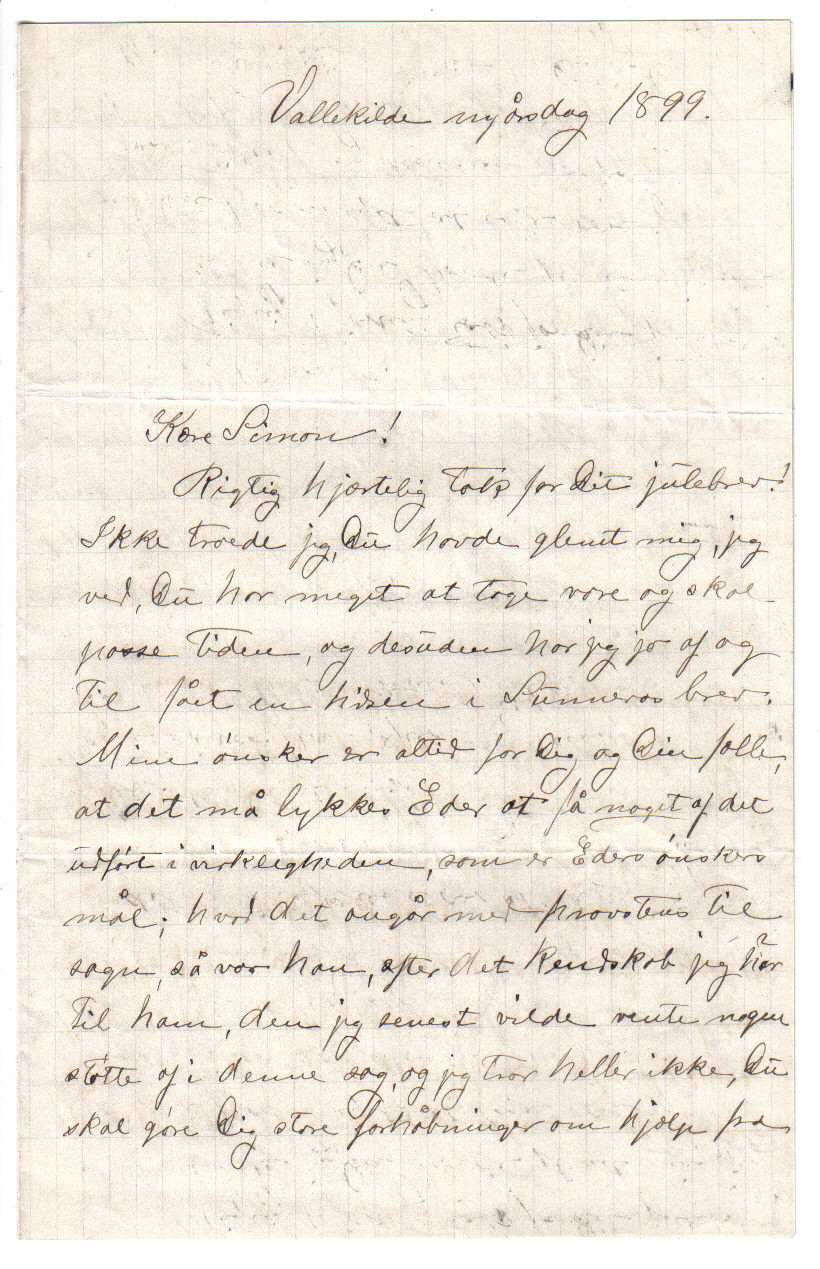 Vallekilde nyårsdag 1899.
Kære Simon!
Rigtig hjærtelig tak for Dit julebrev!
Ikke troede jeg, Du havde glemt mig, jeg
ved, Du har meget at tage vare og skal
passe tiden, og desuden har jeg jo af og
til fået en hilsen i Sunneras brev.
Mine ønsker er altid for Dig og Din fælle,
at det må lykkes Eder at få noget af det
udført i virkeligheden, som er Eders ønskers
mål; hvad det angår med provstens til
sagn, så var han, efter det kendskab jeg har
til ham, den jeg senest vilde vente nogen
støtte af i denne sag, og jeg tror heller ikke, Du
skal gøre Dig store forhåbninger om hjælp fra